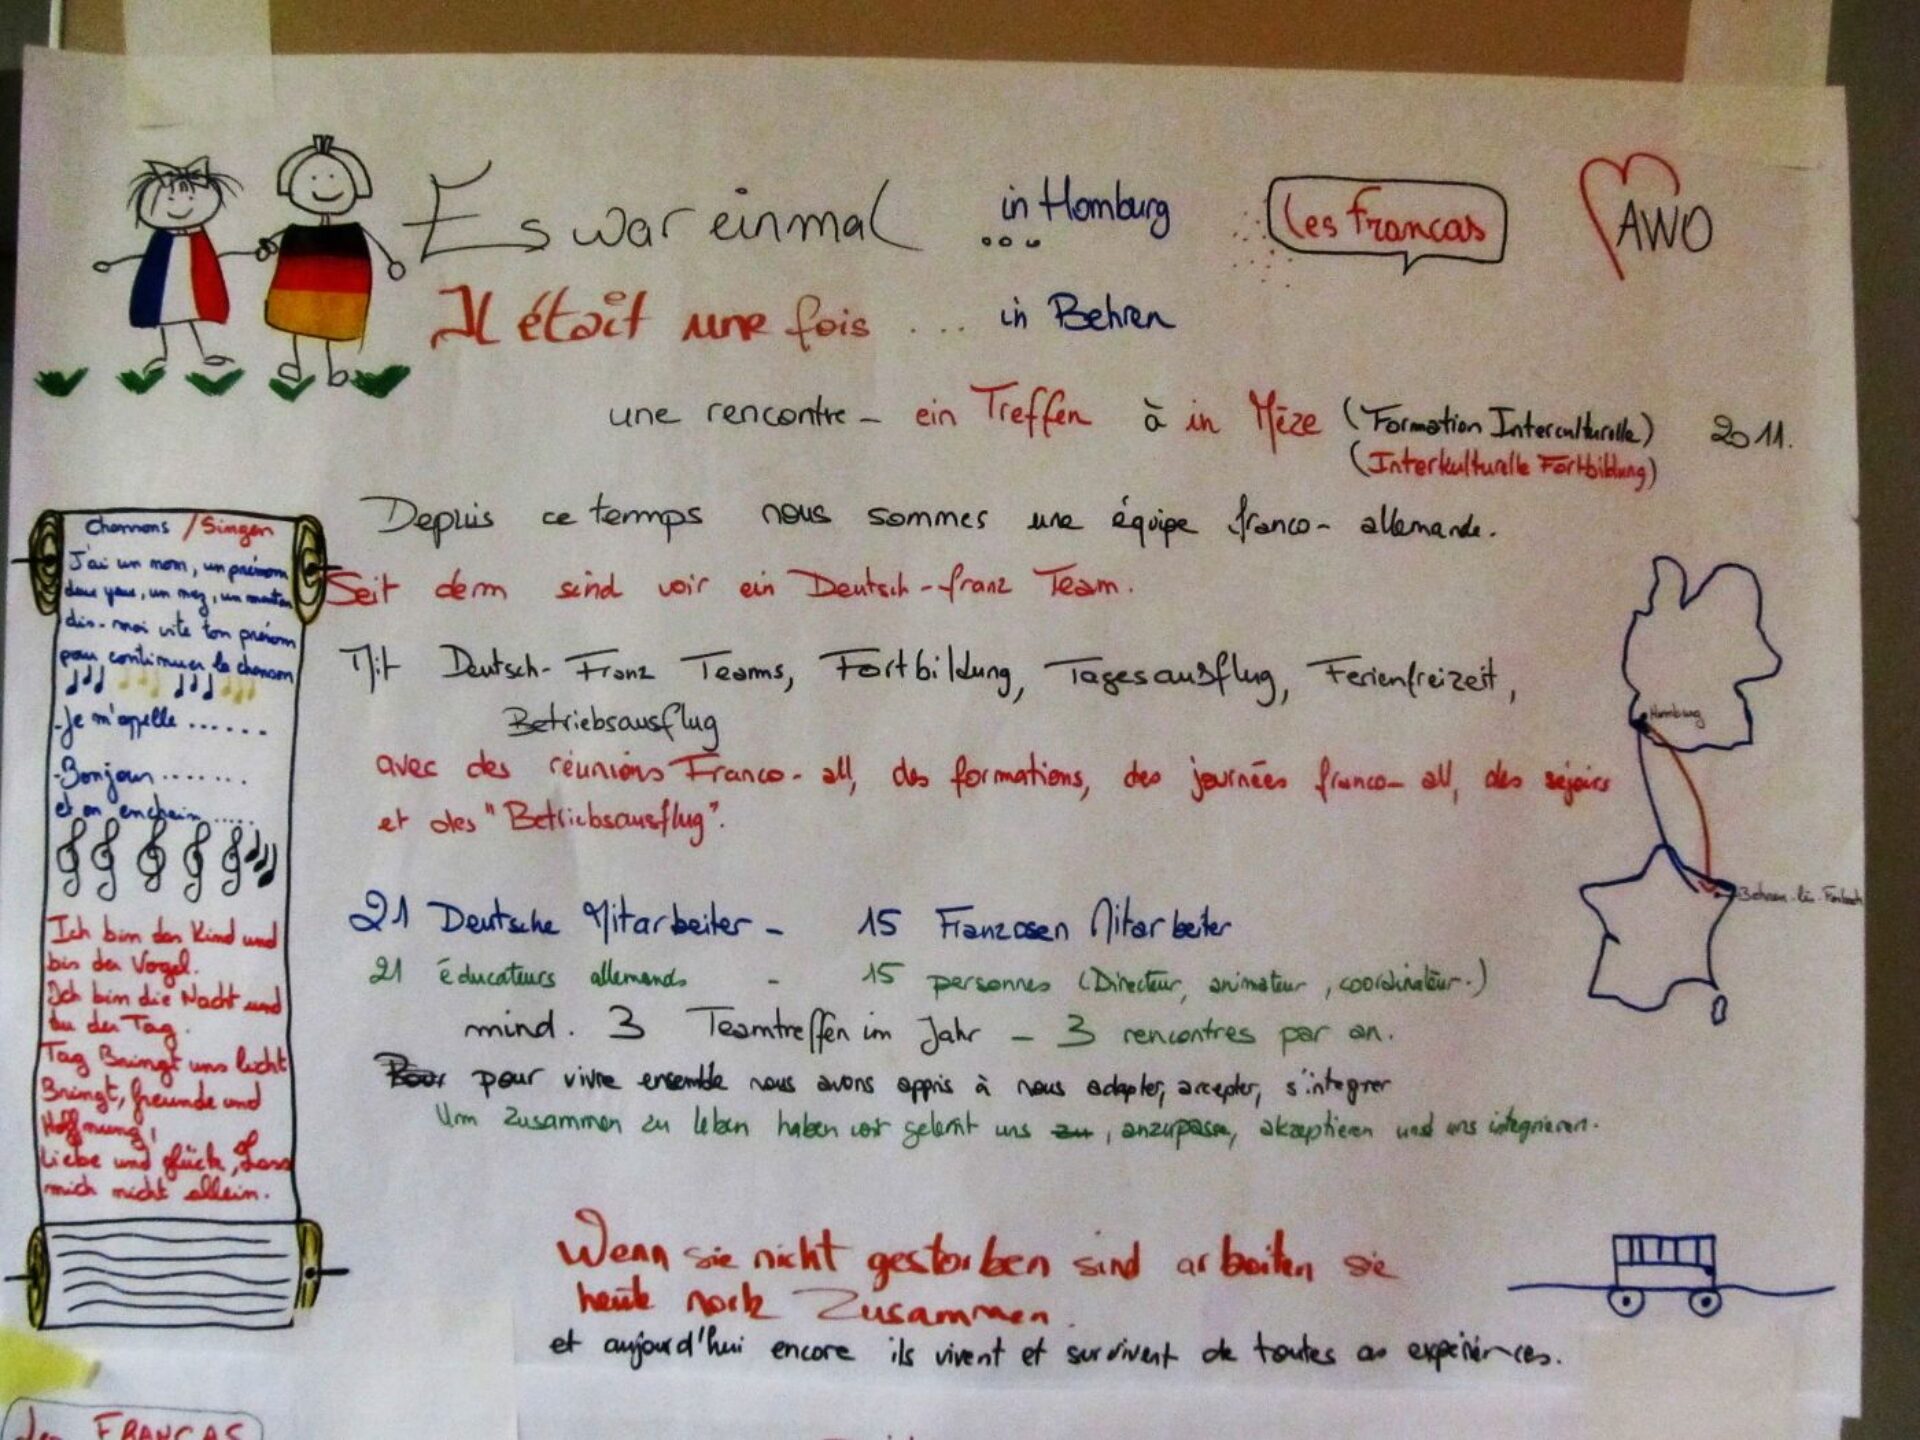 Es war einmal ... in Homburg
les francas
AWO
Il était une fois .... in Behren
une rencontre - ein Treffen à in Mèze (Formation Interculturelle) 2011.
(Interkulturelle Fortbildung)
Depuis ce temps nous sommes une équipe franco-allemande.
Seit dem sind voir ein Deutsch-franz Team.
Mit Deutsch-Franz Teams, Fortbildung, Tagesausflug, Ferienfreizeit,
Betriebsausflug
avec des réunions Franco-all, des formations, des journées franco-all, des séjours
et des "Betriebsausflug".
21 Deutsche Mitarbeiter - 15 Franzosen Mitarbeiter
21 éducateurs allemands - 15 personnes (Directeur, animateur, coordinateur.)
mind. 3 Teamtreffen im Jahr - 3 rencontres par an.
Pour pour vivre ensemble nous avons appris à nous adapter, accepter, s'integrer
Um zusammen zu leben haben wir gelernt uns zu, anzupassen, akzeptieren und uns integrieren.
Wenn sie nicht gestorben sind arbeiten sie
heute noch Zusammen.
et aujourd'hui encore ils vivent et survivent de toutes ces expériences.
Chansons / Singen
J'ai un nom, un prénom
deux yeux, un nez, un menton
dis-moi vite ton prénom
pour continuer la chanson
-Je m'apelle ......
-Bonjour .......
et on enchain .....
Ich bin das Kind und
bis der Vogel.
Ich bin die Nacht und
du der Tag.
Tag Bringt uns licht
Bringt, freunde und
Hoffnung,
Liebe und glück, Lass
mich nicht allein.
Homburg
Behren-lès-Forbach
FRANCAS